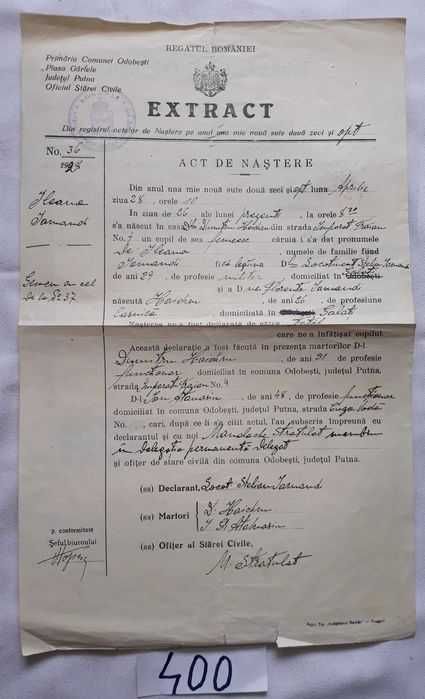 REGATUL ROMÂNIEI
Primăria Comunei Odobești
Plasa Gârlele
Județul Putna
Oficiul Stărei Civile
EXTRACT
Din registrul actelor de Naștere pe anul una mie nouă sute două zeci și opt
No. 36
1928
ACT DE NAȘTERE
Ileana
Din anul una mie nouă sute două zeci și opt luna Aprilie
ziua 28, orele 10
În ziua de 26 ale lunei prezente, la orele 8
s'a născut în casa Dlui Dimitrie din strada Împărat Traian
No. 7 un copil de sex femeesc căruia i s'a dat pronumele
de Ileana, numele de familie fiind
fică legitimă Dlui Locotenent Ștefan
de ani 29, de profesie militar domiciliat în
și a D-nei
născută de ani 26, de profesiune
Casnică domiciliată în Galați
care ne-a înfățișat copilul
Această declarație a fost făcută în prezența martorilor D-l
Dimitrie, de ani 31 de profesie
funcționar domiciliat în comuna Odobești, județul Putna,
strada Împărat Traian No. 4
D-l Ion, de ani 48, de profesie funcționar
domiciliat în comuna Odobești, județul Putna, strada Cuza Vodă
No. , cari, după ce li s'a citit actul, l'au subscris împreună cu
declarantul și cu noi Mandache Stratulat membru
în Delegația permanentă Delegat
și ofițer de stare civilă din comuna Odobești, județul Putna.
(ss) Declarant, Locot. Ștefan
(ss) Martori D.
(ss) Ofițer al Stărei Civile,
M. Stratulat
p. conformitate
Șeful biuroului
400